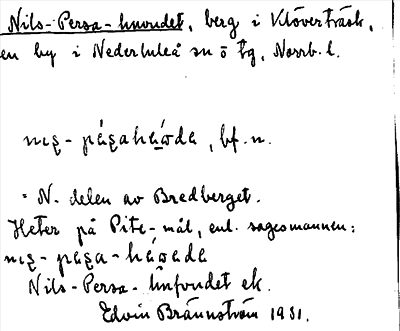 Nils-Persa-huvudet, berg i Klöverträsk,
en by i Nederluleå sn o tg, Norrb. l.
, bf. n.
= N. delen av Bredberget.
Heter på Pite-mål, enl. sagesmannen:
Nils-Persa- ek.
Edvin Brännström 1931.